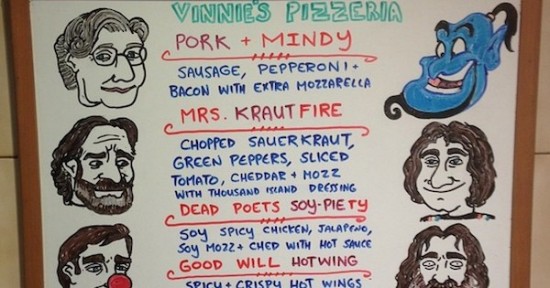 VINNIE'S PIZZERIA
PORK + MINDY
SAUSAGE, PEPPERONI +
BACON WITH EXTRA MOZZARELLA
MRS. KRAUTFIRE
CHOPPED SAUERKRAUT,
GREEN PEPPERS, SLICED
TOMATO, CHEDDAR + MOZZ
WITH THOUSAND ISLAND DRESSING
DEAD POETS SOY-PIETY
SOY SPICY CHICKEN, JALAPEÑO,
SOY MOZZ + CHED WITH HOT SAUCE
GOOD WILL HOTWING
SPICY + CRISPY HOT WINGS